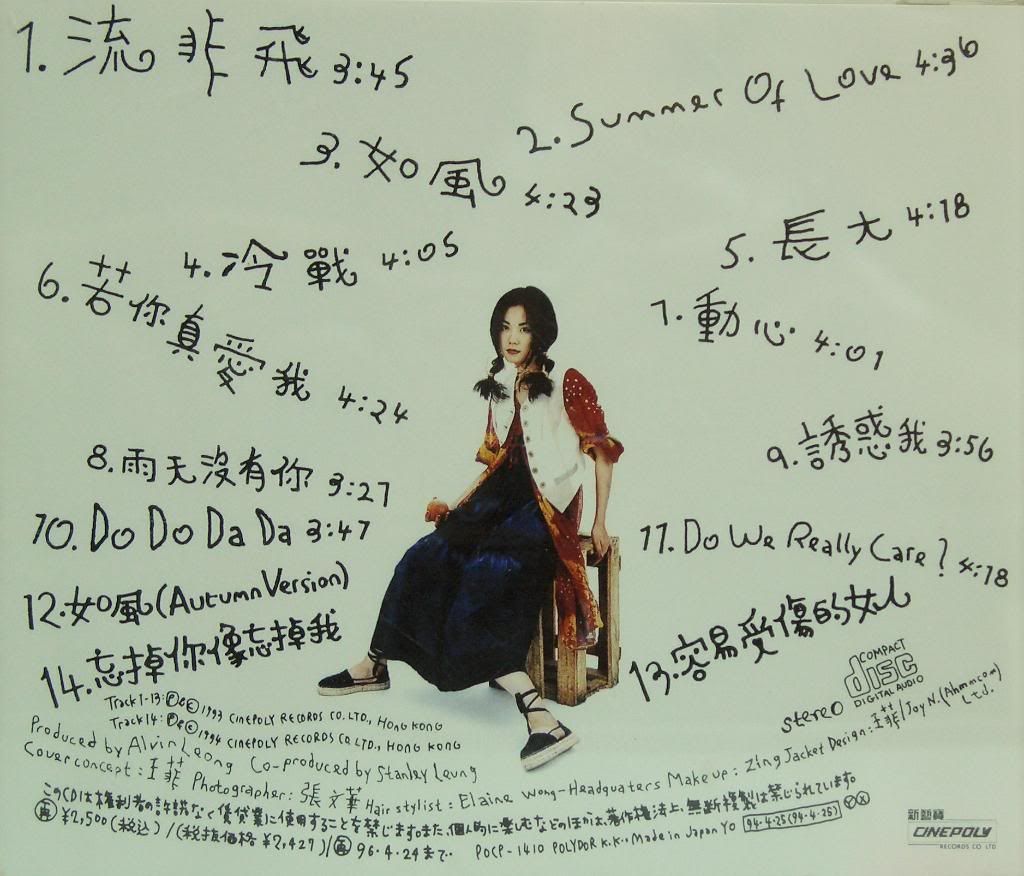 1. 流非飛 3:45
2. Summer Of Love 4:36
3. 如風 4:23
4. 冷戰 4:05
5. 長大 4:18
6. 若你真愛我 4:24
7. 動心 4:01
8. 雨天沒有你 3:27
9. 誘惑我 3:56
10. Do Do Da Da 3:47
11. Do We Really Care? 4:18
12. 如風 (Autumn Version)
13. 容易受傷的女人
14. 忘掉你像忘掉我
Track 1-13: Ⓟ & Ⓒ 1993 CINEPOLY RECORDS CO. LTD., HONG KONG
Track 14: Ⓟ & Ⓒ 1994 CINEPOLY RECORDS CO. LTD., HONG KONG
Produced by Alvin Leong Co-produced by Stanley Leung
Cover concept: 王菲 Photographer: 張文華 Hair stylist: Elaine Wong-Headquaters Makeup: Zing Jacket Design: 王菲/Joy N. (Ahmmcom) Ltd.
stereo COMPACT disc DIGITAL AUDIO
このCDは権利者の許諾なく賃貸業に使用することを禁じます。また、個人的に楽しむなどのほかは、著作権法上、無断複製は禁じられています。
再 ¥2,500(税込)/(税抜価格 ¥2,427)/再 96.4.24まで
POCP-1410 POLYDOR K.K., Made in Japan Yo 94.4.25(94.4.25) Y X
新藝寶
CINEPOLY
RECORDS CO LTD